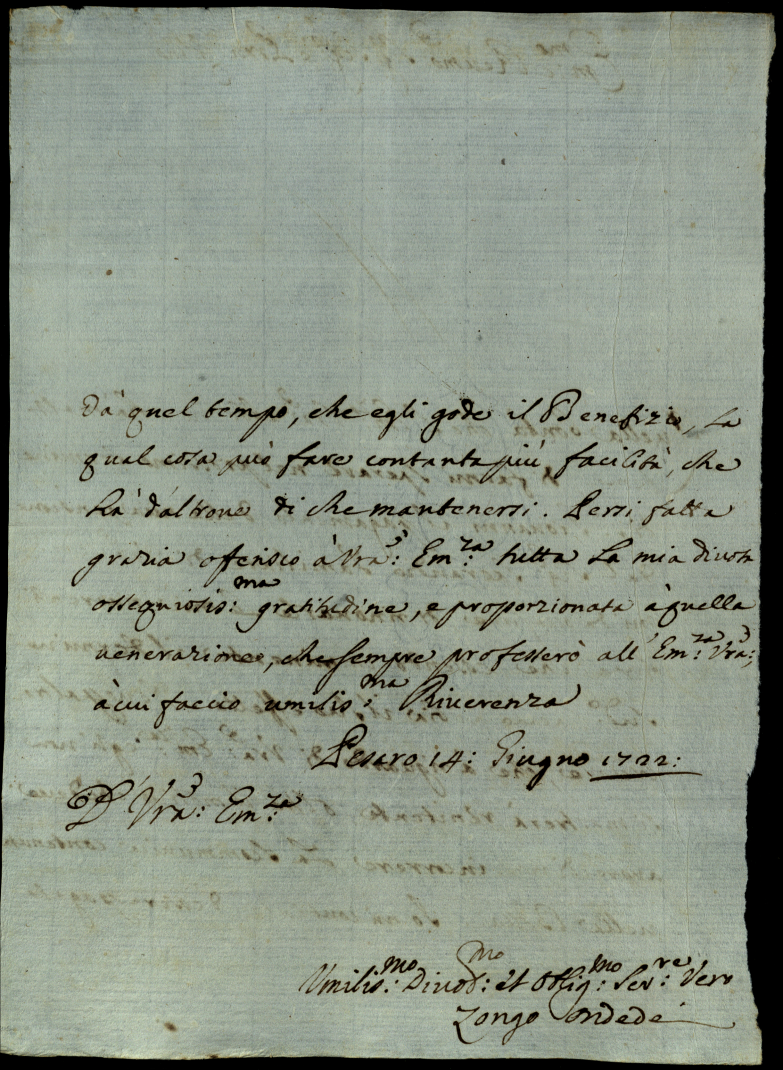 da quel tempo, che egli gode il Benefizio, la
qual cosa può fare con tanta più facilità, che
hà d'altrove di che mantenersi. Persi fatta
grazia offerisco à Vra: Em:za tutta la mia divota
ossequiosis:ma gratitudine, e proporzionata à quella
venerazione, che sempre professerò all' Em:za Vra:,
à cui faccio umilis:ma Riverenza
Pesaro 14: Giugno 1722:
D' Vra: Em:za
Umilis:mo Divot:mo et Oblig:mo Ser:re Vero
Zongo Ondedei